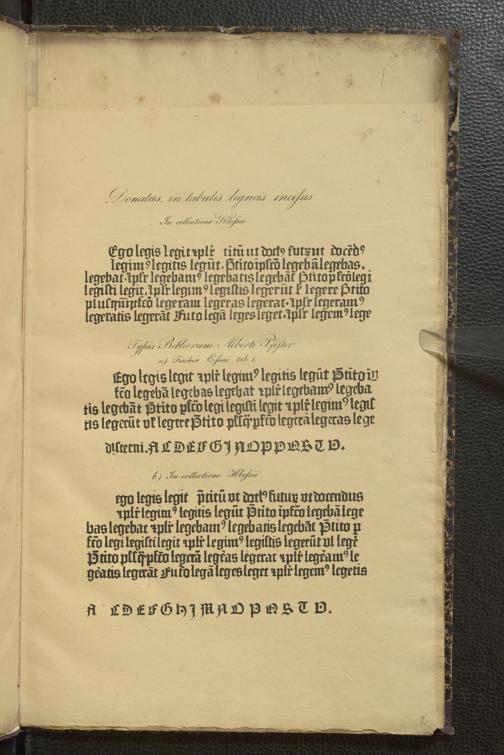 2
Donatus, in tabulis ligneis incisus
In collectione Klossii
Ego legis legit ⁊plr̄ titū ut doctꝰ futꝝut docēdꝰ
legimꝰ legitis legūt. P̄titoipfcō legebā legebas.
legebat ⁊plr̄ legebamꝰ legebatis legebāt P̄tito p̄fcō legi
legisti legit. ⁊plr̄ legimꝰ legistis legerūt ł legere P̄tito
plusqūipfcō legeram legeras legerat. ⁊plr̄ legeramꝰ
legeratis legerāt Futo legā leges leget. ⁊plr̄ legemꝰ lege
Typis Bibliorum Alberti Pfister
a) Fischer Essai tab 1.
Ego legis legit ⁊plr̄ legimꝰ legitis legūt P̄tito ip
fcō legebā legebas legebat ⁊plr̄ legebamꝰ legeba
tis legebāt P̄tito p̄fcō legi legisti legit ⁊plr̄ legimꝰ legis
tis legerūt ūt legere P̄tito plsq̄p̄fcō legerā legeras lege
discerni. A C D E F G I N O P Q R S T V.
b) In collectione Klossii
ego legis legit p̄titū vt doctꝰ futuꝝ vt docendus
⁊plr̄ legimꝰ legitis legūt P̄tito ipfcō legebā lege
bas legebat ⁊plr̄ legebamꝰ legebatis legebāt P̄tito p
fcō legi legisti legit ⁊plr̄ legimꝰ legistis legerūt vl legē
P̄tito plsq̄p̄fcō legerā legēas legerat ⁊plr̄ legēamꝰ le
gēatis legerāt Futo legā leges leget ⁊plr̄ legemꝰ legetis
A C D E F G H I M N O P Q R S T V.
2